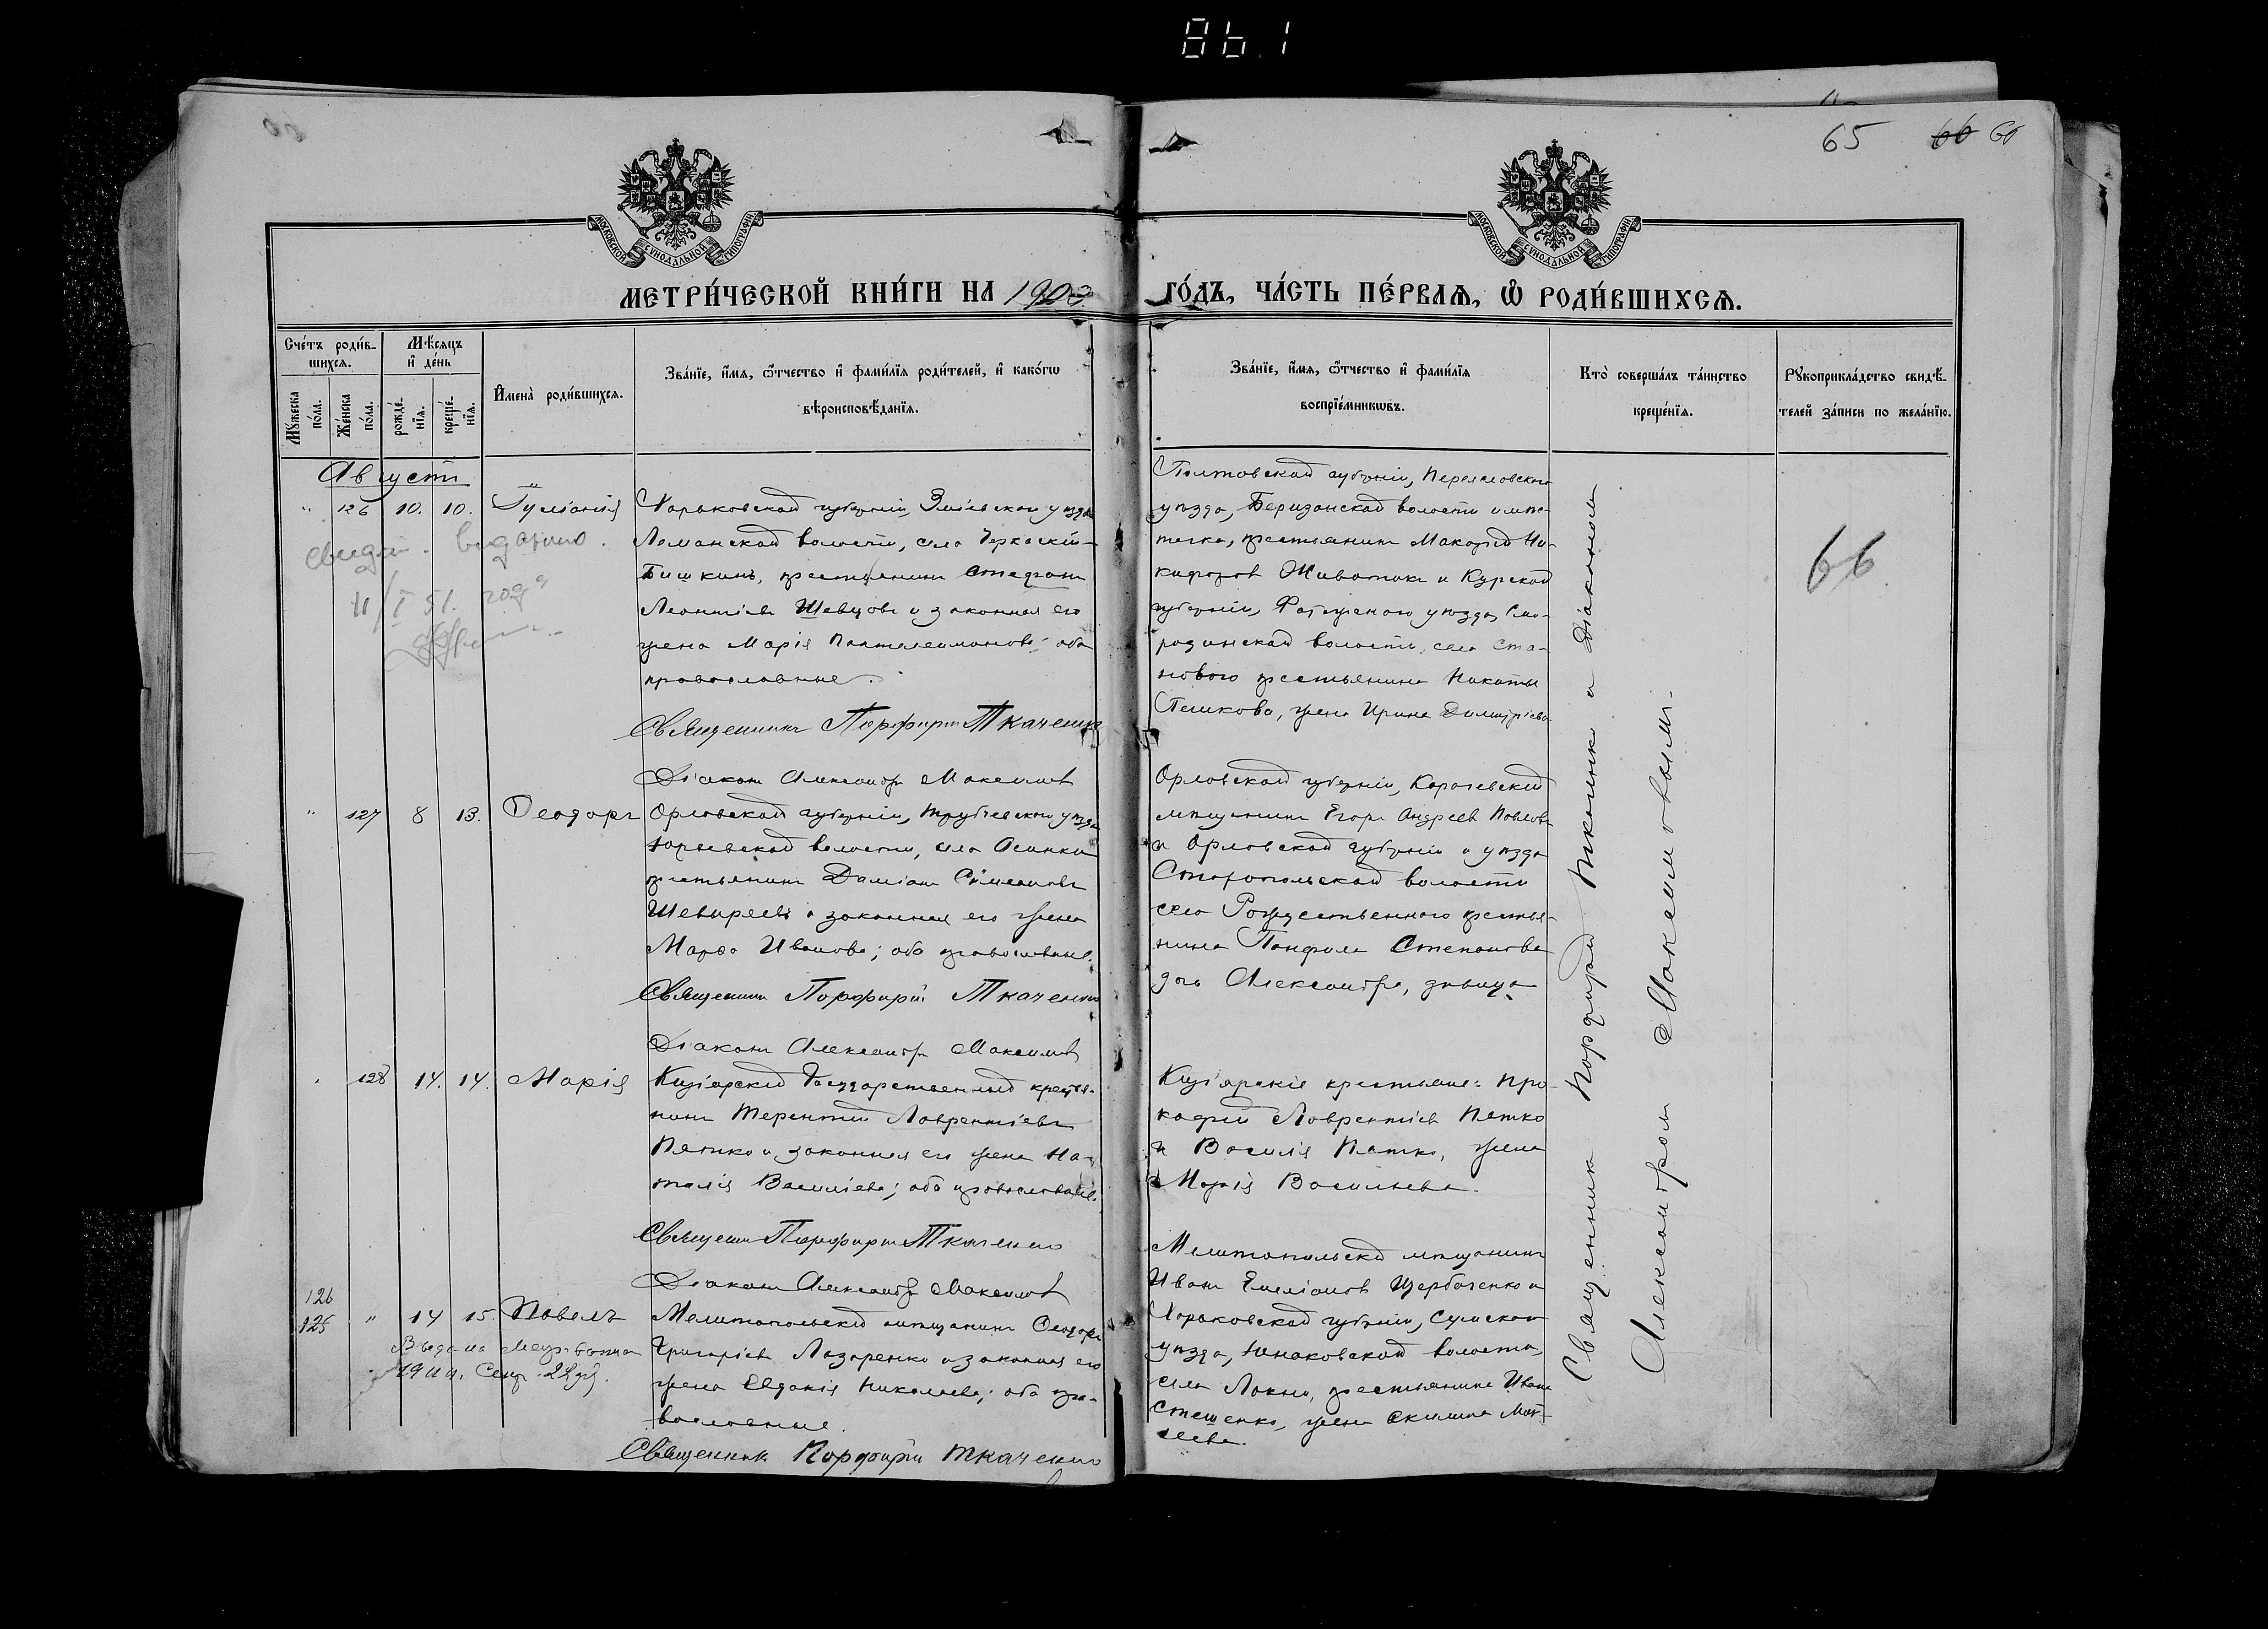 861
65 66 66
МОСКОВСКОЙ СѴНОДАЛЬНОЙ ТИПОГРАФІИ
МОСКОВСКОЙ СѴНОДАЛЬНОЙ ТИПОГРАФІИ
МЕТРИ́ЧЕСКОЙ КНИ́ГИ НА 1900 ГО́ДЪ, ЧА́СТЬ ПЕ́РВАѦ, Ѡ РОДИ́ВШИХСѦ.
Сче́тъ роди́в-
шихсѧ.
Мꙋжеска по́ла.
Же́нска по́ла.
Мѣ́сѧцъ
и҆ де́нь
рожде́-
нїѧ.
креще́-
нїѧ.
И҆мена̀ роди́вшихсѧ.
Зва́нїе, и҆́мѧ, ѻ҆́тчество и҆ фами́лїѧ роди́телей, и҆ како́гѡ
вѣроисповѣ́данїѧ.
Зва́нїе, и҆́мѧ, ѻ҆́тчество и҆ фами́лїѧ
воспрїе́мникѡвъ.
Кто̀ соверша́лъ та́инство
креще́нїѧ.
Рꙋкоприкла́дство свидѣ́-
телей за́писи по жела́нїю.
Августъ
" 126 10. 10. Іуліанія
Харьковской губерніи, Зміевскаго уѣзда
Лиманской волости, села Черкаскій-
Бишкинь, крестьянинъ Стефанъ
Леонтіевъ Шевцовъ и законная его
жена Марія Пантелеимонова; оба
православные.
Священникъ Порфирій Ткаченко
Діаконъ Александръ Максимовъ
выдано.
11/I 51. года
Полтавской губерніи, Переяславскаго
уѣзда, Березанской волости и мѣс-
течка, крестьянинъ Макарій Ни-
кифоровъ Животокъ и Курской
губерніи, Фатежскаго уѣзда, Смо-
родинской волости, села Ста-
нового крестьянина Никиты
Пешкова, жена Ирина Димитріева
66
" 127 8 13. Ѳеодоръ
Орловской губерніи, Трубчевскаго уѣзда
Юрьевской волости, села
крестьянинъ Даміанъ Сѵмеоновъ
Шевыревъ и законная его жена
Марѳа Иванова; оба православные.
Священникъ Порфирій Ткаченко
Діаконъ Александръ Максимовъ
Орловской губерніи, Карачевскій
мѣщанинъ Егоръ Андреевъ Павловъ
и Орловской губерніи и уѣзда
волости
села Рождественного крестья-
нина Панфила Степанова
дочь Александра, дѣвица
" 128 14. 14. Марія
Кизіярскій Государственный крестья-
нинъ Терентій Лаврентіевъ
Пятко и законная его жена На-
талія Василіева; оба православные.
Священникъ Порфирій Ткаченко
Діаконъ Александръ Максимовъ
Кизіярскіе крестьяне: Про-
кофій Лаврентіевъ Пятко
и Василія Пятко, жена
Марія Васильева.
126
125 " 14 15. Павелъ
Выдана
1911 г. Сент. 22 д.
Мелитопольскій мѣщанинъ Ѳеодоръ
Григоріевъ Лазаренко и законная его
жена Евдокія Николаева; оба пра-
вославные.
Священникъ Порфирій Ткаченко
Мелитопольскій мѣщанинъ
Иванъ Емеліановъ Щербаченко и
Харьковской губерніи, Сумскаго
уѣзда, Юнаковской волости,
села Локни, крестьянина Ивана
Стешенко, жена Акилина Мат-
ѳеева.
Священникъ Порфирій Ткаченко и Діакономъ
Александромъ Максимовымъ.